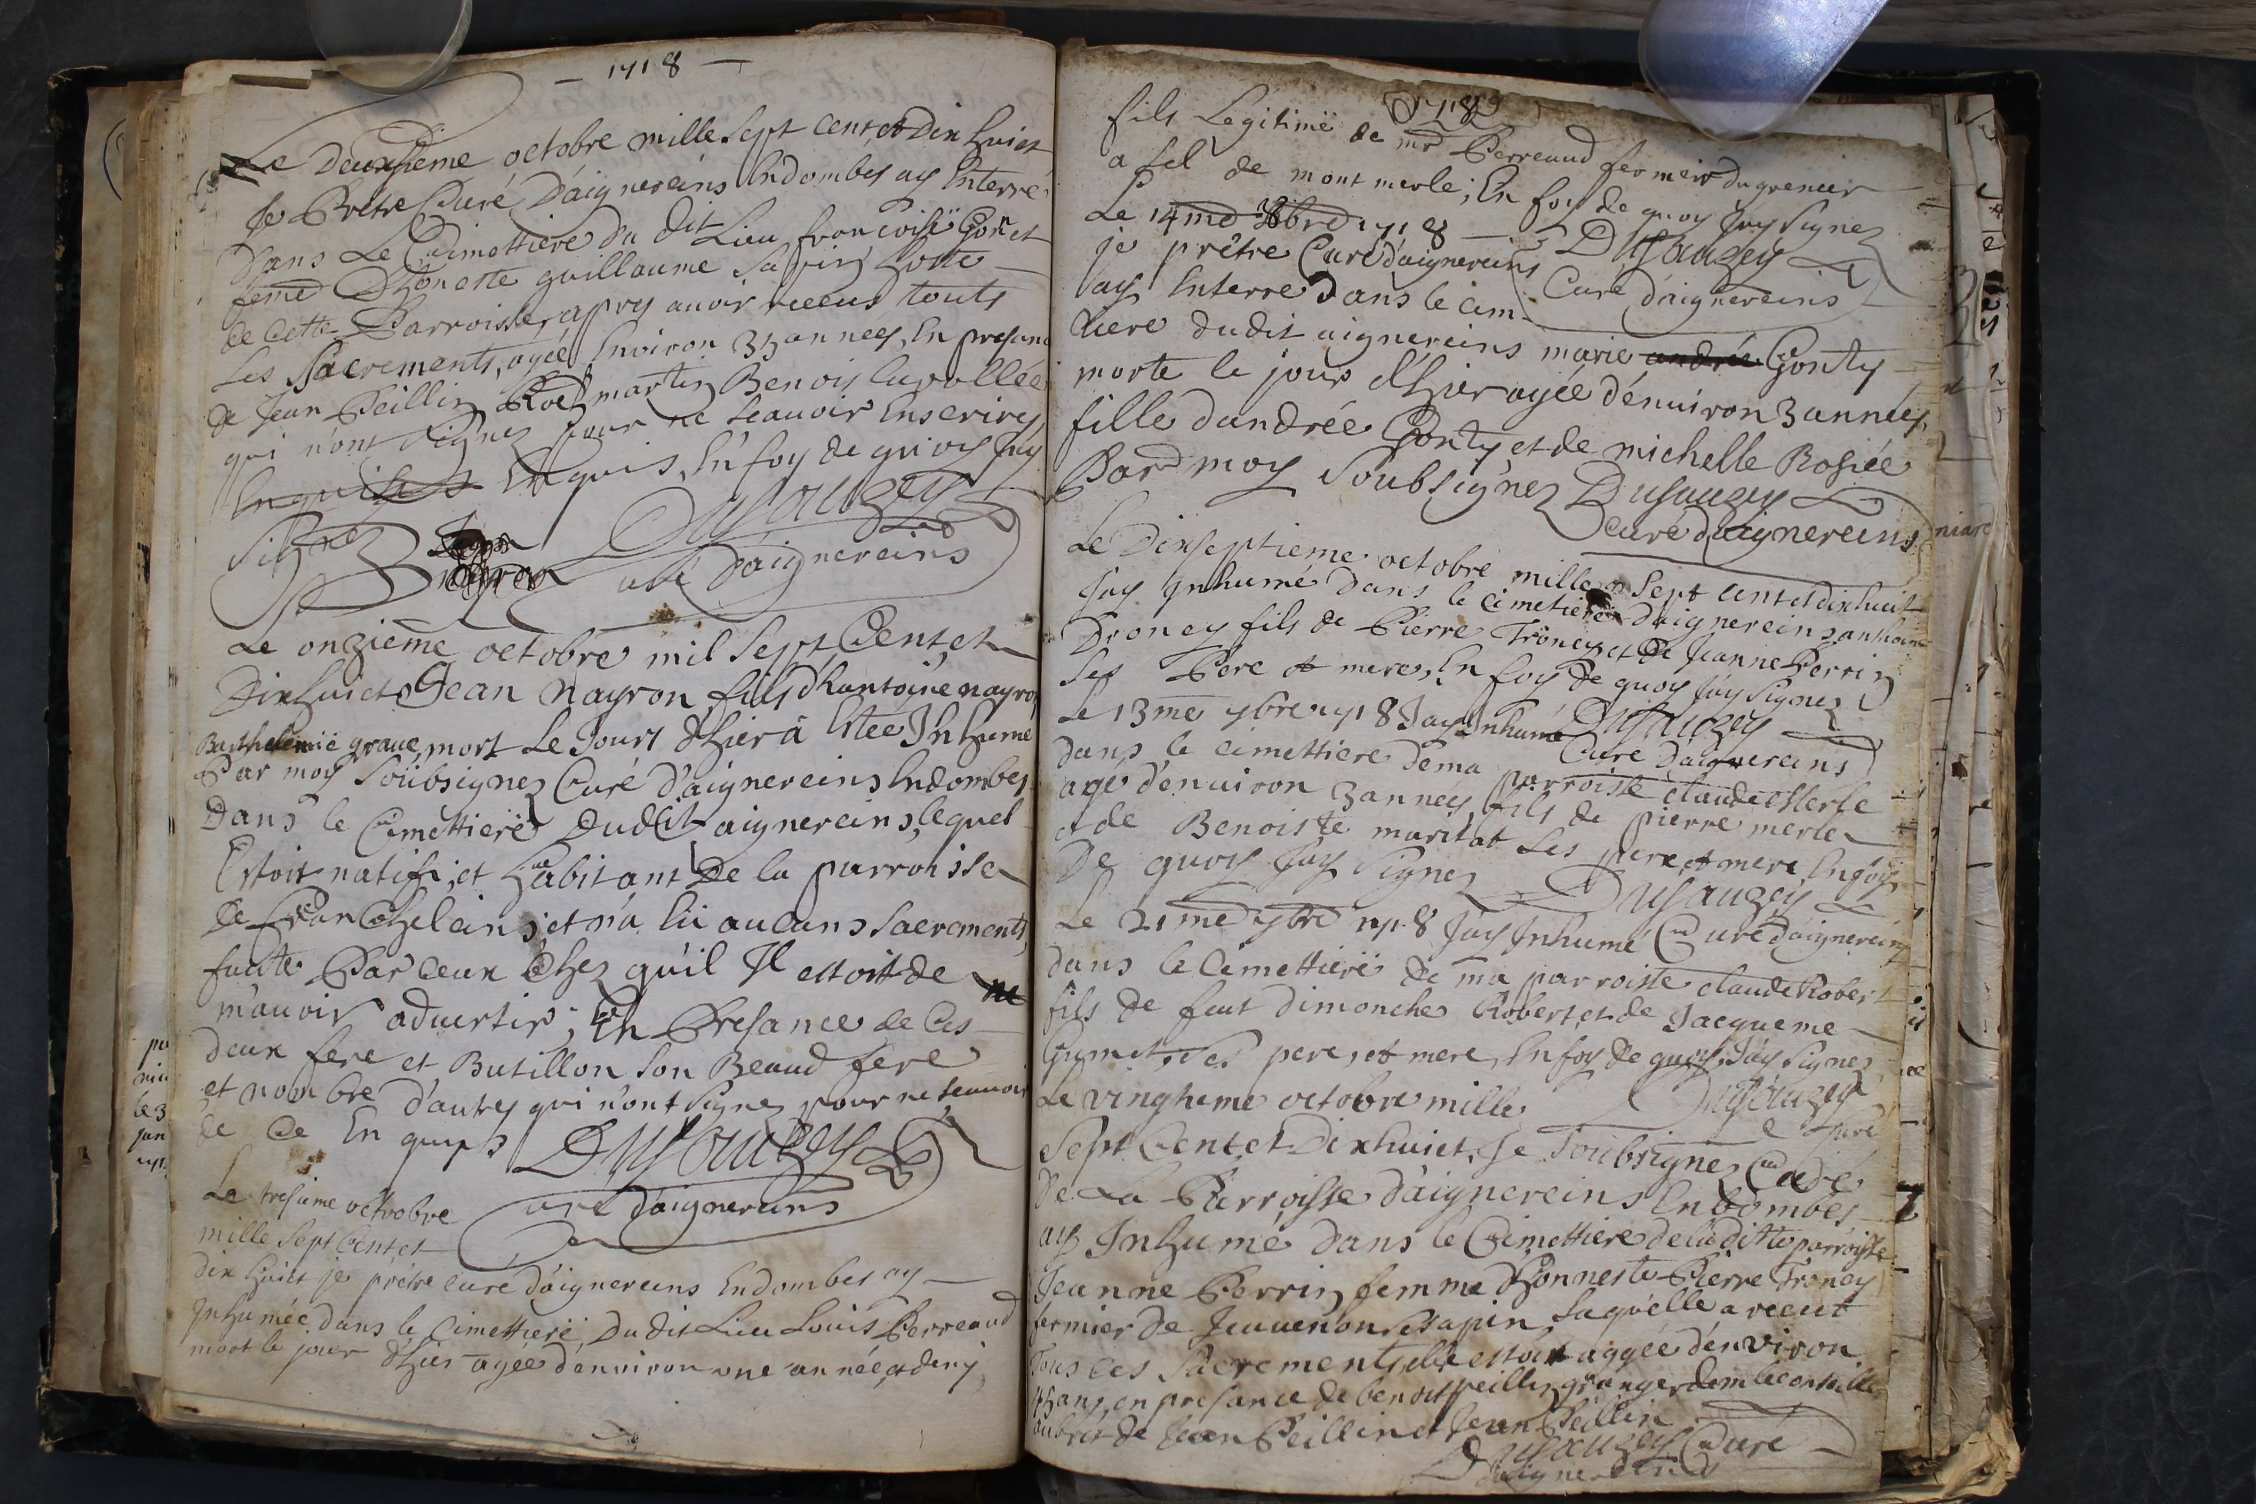 1718
Le deuxsieme octobre mille sept cent et dix huict
Je Prêtre Curé D'aignereins Endombes ay Enterré
Dans Le Cimettiere du dit Lieu francoise Gonet
feme D'honeste guillaume Sapin hoste
de Cette Parroisse, apres avoir receus touts
Les Sacrements, agée Environ 35 annees, En presance
de Jean Peillin martin Benois
qui n'ont Signez pour ne scauoir Enscrires
Enquis, En foy de quoy J'ay
Signez Dusauzey
Curé D'aignereins
Le onzième octobre mil Sept Cent et
Dix huict Jean nayron, fils D'hantoine nayron
Barthelemie graue, mort Le Jours d'hier à Estee Inhume
Par moy Soubsignez Curé d'aignereins Endombes
Dans le Cimettiere Dudit aignereins, lequel
Estoit natif, et habitant De la parroisse
De franchelein, et n'a Eü aucuns Sacrements
faute Par Ceux Chez qu'il Il estoit de
m'auoir aduertir; En Presance de Ces
deux fere et Butillon Son Beaud fere
et nombre d'autres qui n'ont Signez pour ne scauoir
de Ce Enquis Dusauzey
Curé d'aignereins
Le tresieme octobre
mille Sept Cent et
dix huict je prétre curé d'aignereins Endombes ay
Inhumée dans le Cimettiere Du dit Lieu Louis Perreaud
mort le jour d'hier agée d'enuiron une année et demy
1718
fils Legitime de mr Perreaud fermeir du grenier
a sel de montmerle; En foy de quoy J'ay Signez
Dusauzey
Curé d'aignereins
Le 14me 8bre 1718
je prêtre Curé d'aignereins
ay Enterre Dans le cim
tiere dudit aignereins marie andrée Gonty
morte le jour d'hier agée d'enuiron 3 années
fille d'andrée Gonty et de michelle Rosiée
Par moy Soubsignez Dusauzey
Curé d'aignereins
Le Dixseptieme octobre mille Sept cent et dix huit
J'ay Inhumé dans le cimetiere D'aignereins
Droney fils de Pierre Troney et de Jeanne Perrin
Ses Pere et mere, En foy de quoy J'ay Signez
Dusauzey
Curé D'aignereins
Le 13me 1718 J'ay Inhumé
dans le cimettiere de ma parroisse claude Merle
age d'enuiron 3 annes, fils de pierre merle
et de Benoiste maritat Ses pere et mere En foy
De quoy J'ay Signez Dusauzey
Curé d'aignereins
Le 21me 1718 J'ay Inhumé
dans le Cimettiere de ma parroisse claude Robert
fils de feut dimonche Robert, et de Jacqueme
Ses pere, et mere, En foy de quoy J'ay Signez
Dusauzey
Curé
Le vingtieme octobre mille
Sept Cent et Dixhuict, Je Soubsignez Curé
De La Parroisse d'aignereins Endombes
ay Inhumé dans le Cimettiere de laditte parroisse
Jeanne Perrin femme d'honneste Pierre Troney
fermier de Sapin, Laquelle a receut
Tous les Sacrements, elle estoit aggée d'environ
ans, en presance de benoit peillin granger
de Jean Peillin et Jean Peillin
Dusauzey Curé
d'aignereins